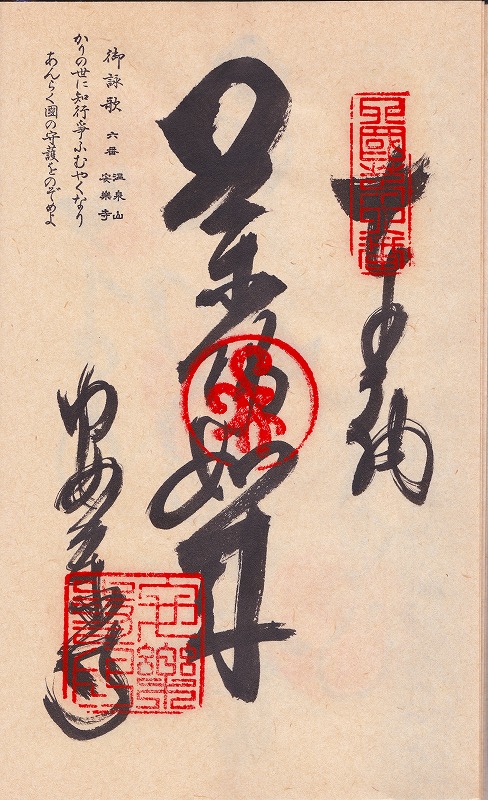 奉納
四國第六番
是薬師如来
御詠歌 六番 温泉山 安樂寺
かりの世に知行爭ふむやくなり
あんらく國の守護をのぞめよ
安樂寺